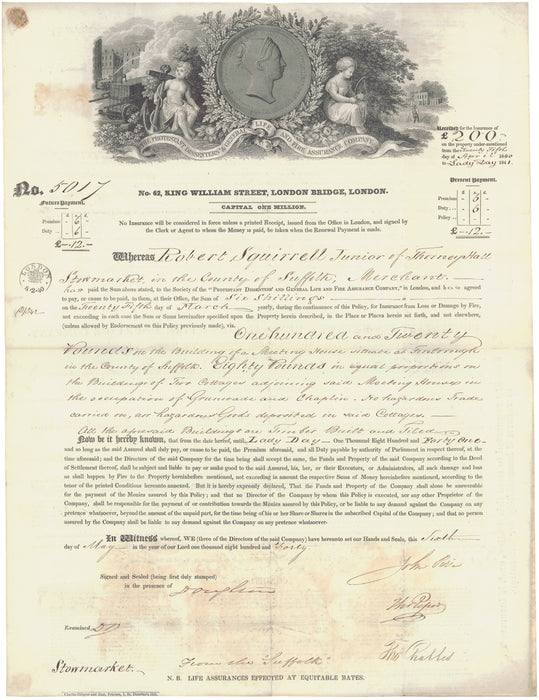 THE PROTESTANT DISSENTERS & GENERAL LIFE AND FIRE ASSURANCE COMPANY
Received for the Insurance of
£ 200
on the property under-mentioned
from the Twenty Fifth
day of April 1840
to Lady Day 1841.
No. 5017
No. 62, KING WILLIAM STREET, LONDON BRIDGE, LONDON.
CAPITAL ONE MILLION.
Future Payment.
Premium
Duty
£ -.12.-
Present Payment.
Premium
Duty
Policy
£ -.12.-
No Insurance will be considered in force unless a printed Receipt, issued from the Office in London, and signed by
the Clerk or Agent to whom the Money is paid, be taken when the Renewal Payment is made.
Whereas Robert Squirrell Junior of Thorney Hall
Stowmarket, in the County of Suffolk, Merchant.
has paid the Sum above stated, to the Society of the "PROTESTANT DISSENTERS' AND GENERAL LIFE AND FIRE ASSURANCE COMPANY," in London, and has agreed
to pay, or cause to be paid, to them, at their Office, the Sum of Six Shillings
on the Twenty Fifth day of March yearly, during the continuance of this Policy, for Insurance from Loss or Damage by Fire,
not exceeding in each case the Sum or Sums hereinafter specified upon the Property herein described, in the Place or Places herein set forth, and not elsewhere,
(unless allowed by Endorsement on this Policy previously made), viz.
One hundred and Twenty
Pounds on the Building of a Meeting House situate at
in the County of Suffolk. Eighty Pounds in equal proportions on
the Buildings of Two Cottages adjoining said Meeting House in
the occupation of and Chaplin. No hazardous Trade
carried on, nor hazardous Goods deposited in said Cottages.
All the aforesaid Buildings are Timber Built and Tiled.
Now be it hereby known, that from the date hereof, until Lady Day One Thousand Eight Hundred and Forty One
and so long as the said Assured shall duly pay, or cause to be paid, the Premium aforesaid, and all Duty payable by authority of Parliament in respect thereof, at the time
aforesaid, and the Directors of the said Company for the time being shall accept the same, the Funds and Property of the said Company according to the Deed
of Settlement thereof, shall be subject and liable to pay or make good to the said Assured, his, her, or their Executors, or Administrators, all such damage and loss
as shall happen by Fire to the Property hereinbefore mentioned, not exceeding in amount the respective Sums of Money hereinbefore mentioned, according to the
tenor of the printed Conditions hereunto annexed. But it is hereby expressly declared, That the Funds and Property of the Company shall alone be answerable
for the payment of the Monies assured by this Policy; and that no Director of the Company by whom this Policy is executed, nor any other Proprietor of the
Company, shall be responsible for the payment of or contribution towards the Monies assured by this Policy, or be liable to any demand against the Company on any
pretence whatsoever, beyond the amount of the unpaid part, for the time being of his or her Share or Shares in the subscribed Capital of the Company; and that no person
assured by the Company shall be liable to any demand against the Company on any pretence whatsoever.
In Witness whereof, WE (three of the Directors of the said Company) have hereunto set our Hands and Seals, this Sixth
day of May in the year of our Lord one thousand eight hundred and Forty
Signed and Sealed (being first duly stamped)
in the presence of
Examined,
Stowmarket.
From the "Suffolk"
N. B. LIFE ASSURANCES EFFECTED AT EQUITABLE RATES.